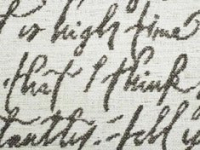 is high time
that I think
tell y